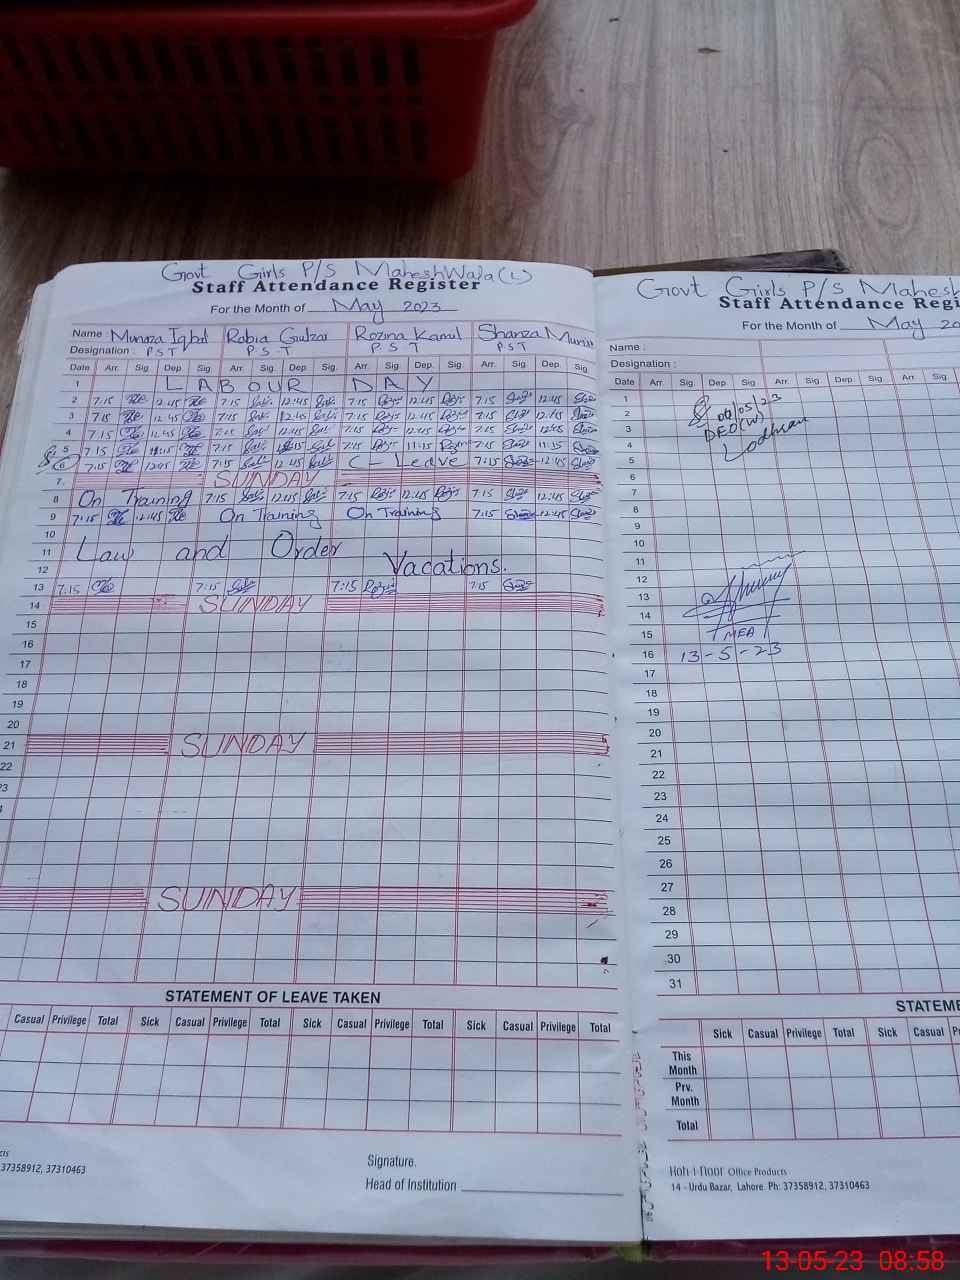 Govt Girls P/S MaheshWala (L)
Staff Attendance Register
For the Month of May 2023
Name : Munaza Iqbal Rabia Gulzar Rozina Kamal Shanza Munir
Designation : P S T P S T P S T P S T
Date Arr. Sig. Dep. Sig. Arr. Sig. Dep. Sig. Arr. Sig. Dep. Sig. Arr. Sig. Dep. Sig.
1 LABOUR DAY
2 7:15 12:45 7:15 12:45 7:15 12:45 7:15 12:45
3 7:15 12:45 7:15 12:45 7:15 12:45 7:15 12:45
4 7:15 12:45 7:15 12:45 7:15 12:45 7:15 12:45
5 7:15 11:15 7:15 11:15 7:15 11:15 7:15 11:15
6 7:15 12:05 7:15 12:45 C-Leave 7:15 12:45
7. SUNDAY
8 On Training 7:15 12:45 7:15 12:45 7:15 12:45
9 7:15 12:45 On Training On Training 7:15 12:45
10
11 Law and Order
12 Vacations.
13 7:15 7:15 7:15 7:15
14 SUNDAY
15
16
17
18
19
20
21 SUNDAY
22
SUNDAY
STATEMENT OF LEAVE TAKEN
Casual Privilege Total Sick Casual Privilege Total Sick Casual Privilege Total Sick Casual Privilege Total
37358912, 37310463
Signature.
Head of Institution
Govt Girls P/S Mahesh
Staff Attendance Regi
For the Month of May 20
Name :
Designation :
Date Arr. Sig. Dep. Sig. Arr. Sig. Dep. Sig. Arr. Sig.
1
2 06/05/23
3 DEO(W)
4 Lodhran
5
6
7
8
9
10
11
12
13
14
15 MEA
16 13-5-23
17
18
19
20
21
22
23
24
25
26
27
28
29
30
31
STATEME
Sick Casual Privilege Total Sick Casual P
This Month
Prv. Month
Total
Koh-i-Noor Office Products
14 - Urdu Bazar, Lahore. Ph: 37358912, 37310463
13-05-23 08:58